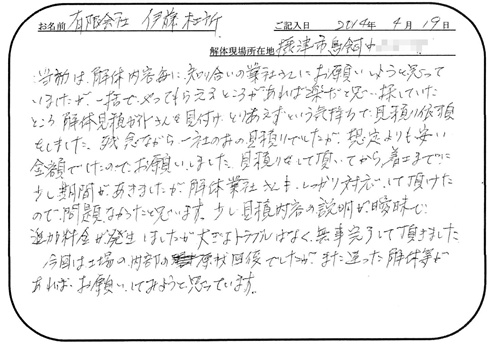 お名前 有限会社 伊藤 ご記入日 2014年 4月 19日
解体現場所在地 摂津市鳥飼
当初は、解体内容毎に、知り合いの業社さんにお願いしようと思って
いましたが、一括でやってもらえるところがあれば楽だと思い探していた
ところ 解体見積 さんを見付け とりあえずという気持ちで見積り依頼
をしました。残念ながら一社のみの見積りでしたが、想定よりも安い
金額でしたので、お願いしました。見積りをして頂いてから、着工までに
少し期間があきましたが 解体業社さんも、しっかり対応して頂けた
ので、問題なかったと思います。少し見積内容の説明が曖昧で、
追加料金が発生しましたが大きなトラブルはなく、無事完了して頂きました
今回は工場の内部の 原状回復でしたが、また違った解体等が
あれば、お願いしてみようと思っています。